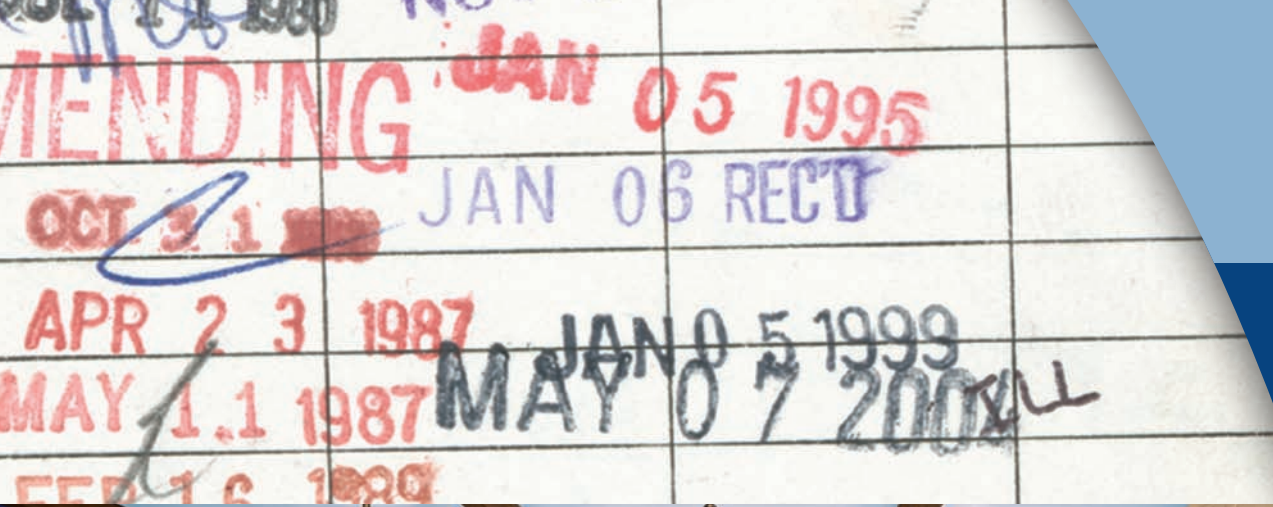 MENDING
JAN 05 1995
OCT 31
JAN 06 REC'D
APR 23 1987
JAN 05 1999
MAY 11 1987
MAY 07
ILL
FEB 16 1989